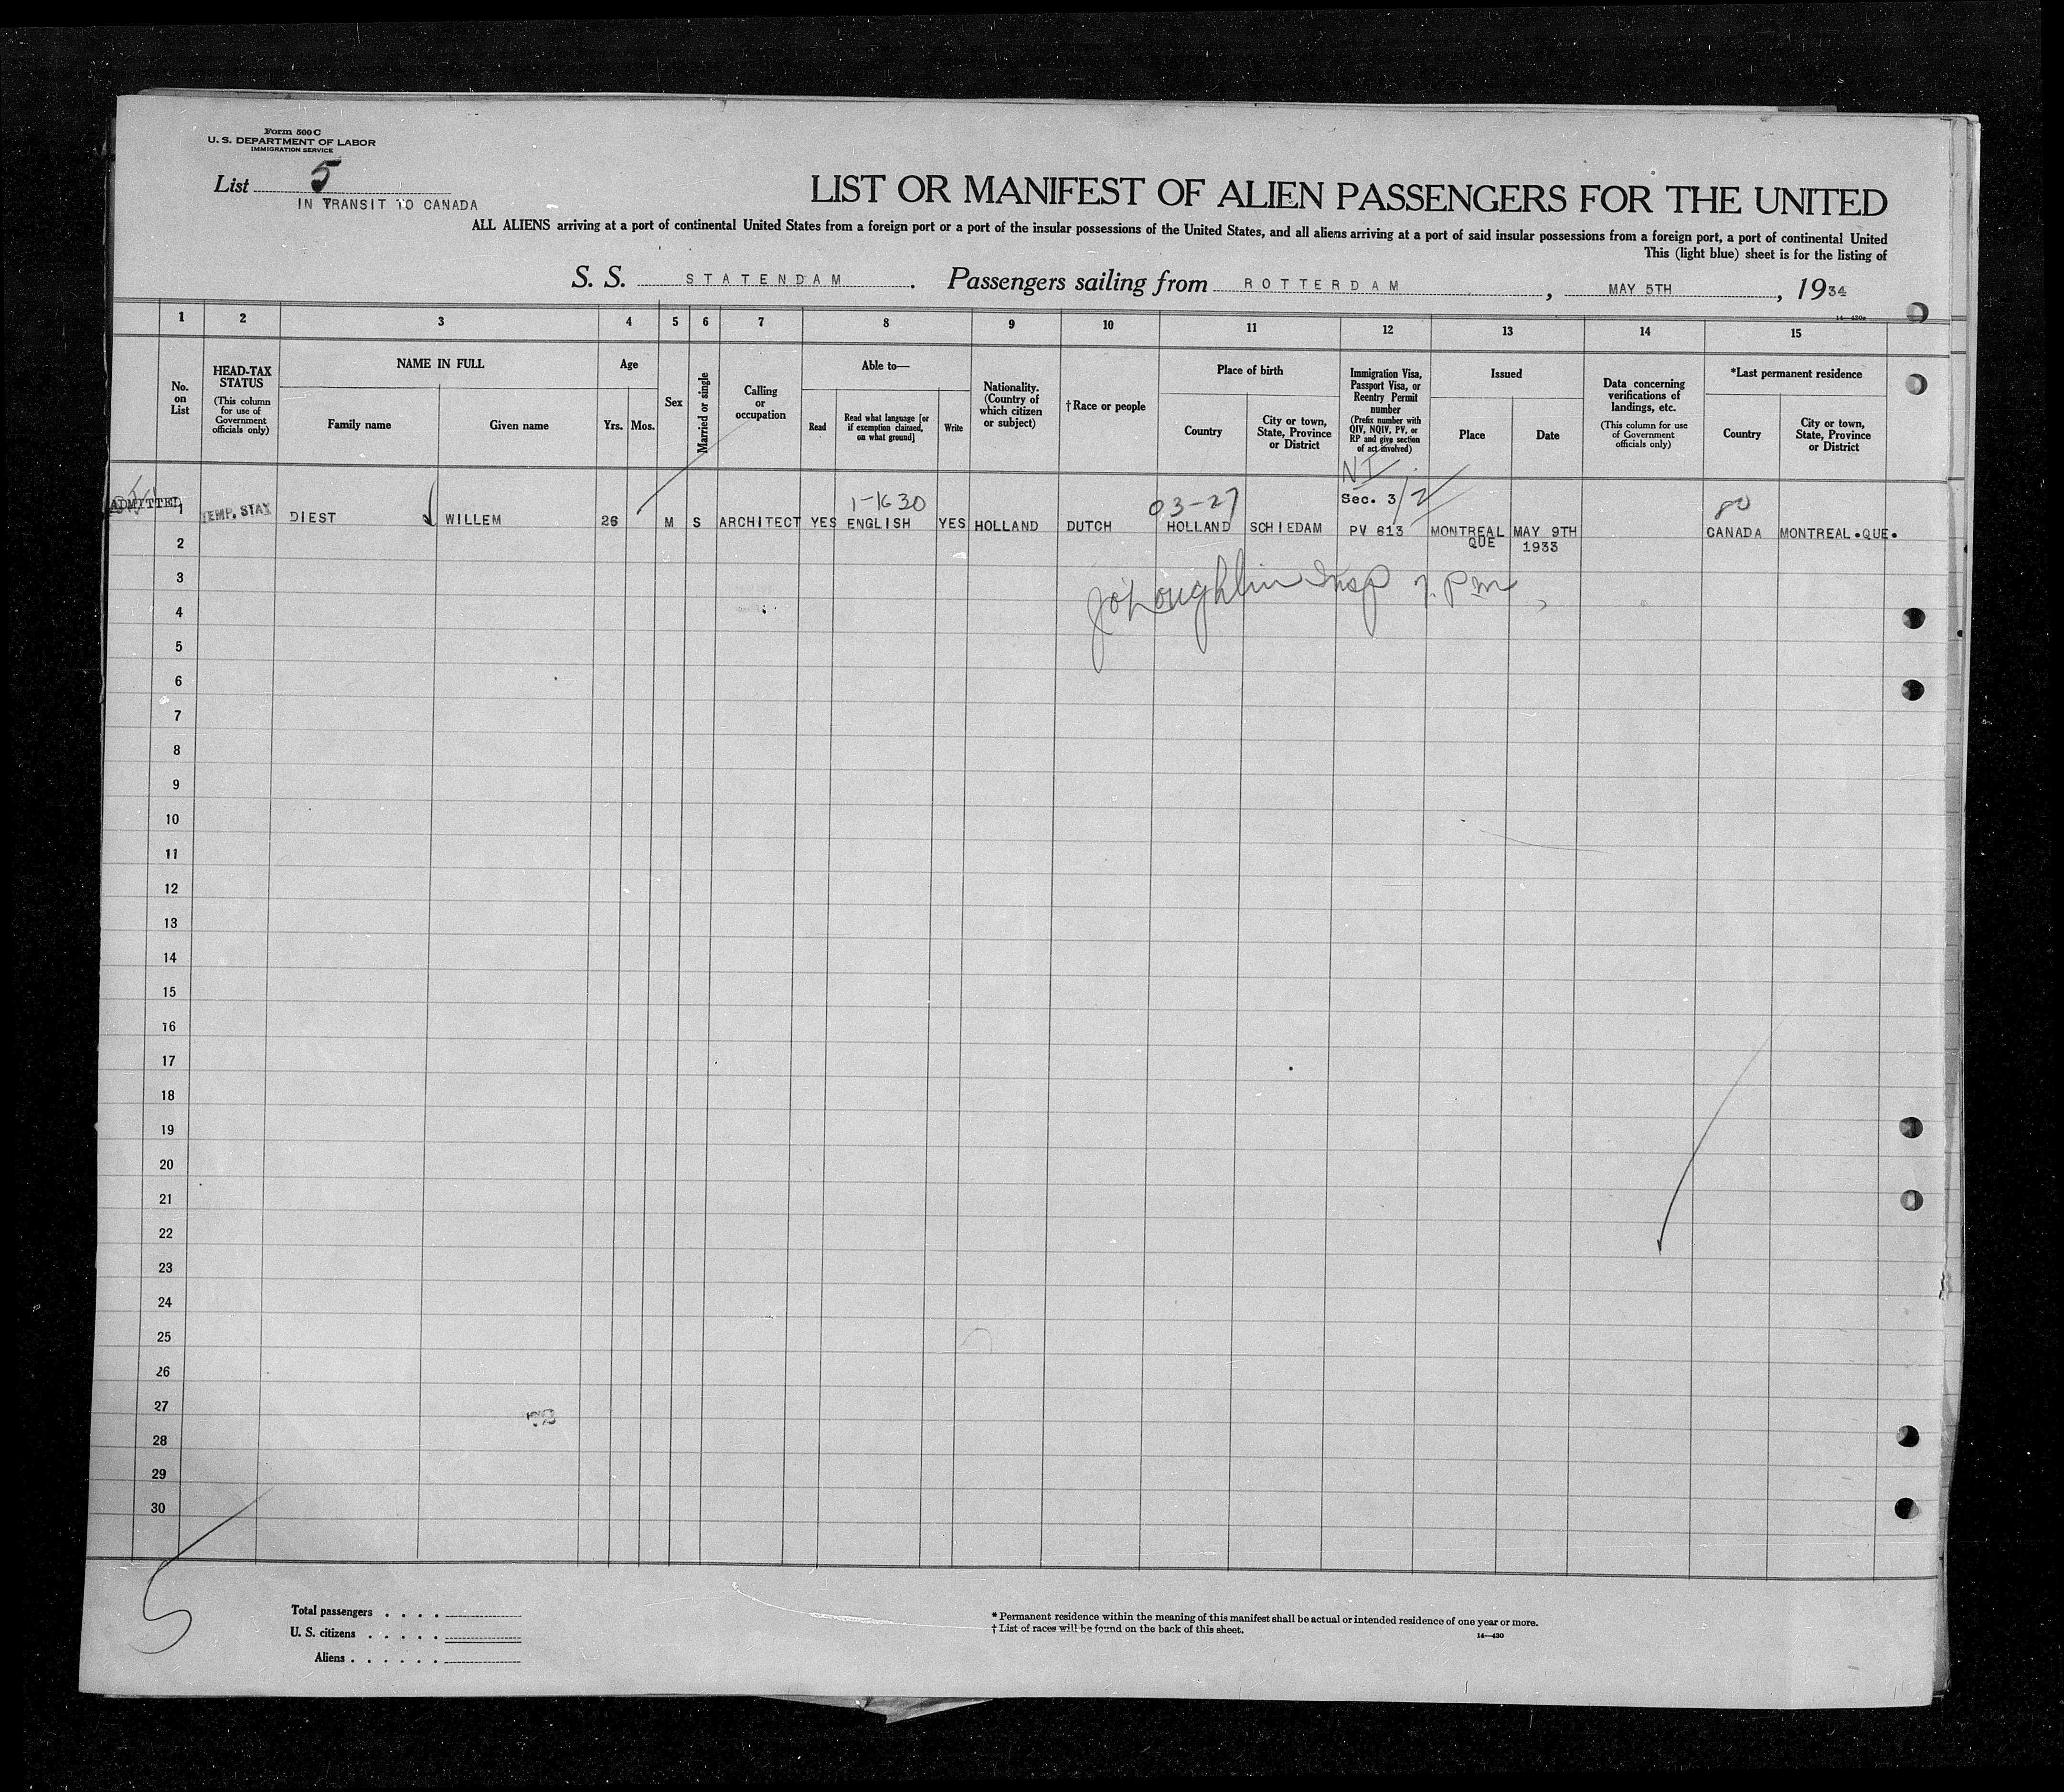 Form 500 C
U. S. DEPARTMENT OF LABOR
IMMIGRATION SERVICE
List 5
IN TRANSIT TO CANADA
LIST OR MANIFEST OF ALIEN PASSENGERS FOR THE UNITED
ALL ALIENS arriving at a port of continental United States from a foreign port or a port of the insular possessions of the United States, and all aliens arriving at a port of said insular possessions from a foreign port, a port of continental United
This (light blue) sheet is for the listing of
S. S. STATENDAM. Passengers sailing from ROTTERDAM, MAY 5TH, 1934
14—430c
1 2 3 4 5 6 7 8 9 10 11 12 13 14 15
No. on List
HEAD-TAX STATUS
(This column for use of Government officials only)
NAME IN FULL
Family name
Given name
Age
Yrs.
Mos.
Sex
Married or single
Calling or occupation
Able to—
Read
Read what language [or if exemption claimed, on what ground]
Write
Nationality. (Country of which citizen or subject)
†Race or people
Place of birth
Country
City or town, State, Province or District
Immigration Visa, Passport Visa, or Reentry Permit number
(Prefix number with QIV, NQIV, PV, or RP and give section of act involved)
Issued
Place
Date
Data concerning verifications of landings, etc.
(This column for use of Government officials only)
*Last permanent residence
Country
City or town, State, Province or District
NI
1-1630 03-27 Sec. 3/2 80
ADMITTED 1 TEMP. STAY DIEST WILLEM 26 M S ARCHITECT YES ENGLISH YES HOLLAND DUTCH HOLLAND SCHIEDAM PV 613 MONTREAL MAY 9TH CANADA MONTREAL.QUE.
2 QUE 1933
3 Jo'Loughlin Insp
4
5
6
7
8
9
10
11
12
13
14
15
16
17
18
19
20
21
22
23
24
25
26
27
28
29
30
Total passengers . . . .
U. S. citizens . . . . .
Aliens . . . . . .
* Permanent residence within the meaning of this manifest shall be actual or intended residence of one year or more.
† List of races will be found on the back of this sheet.
14—430